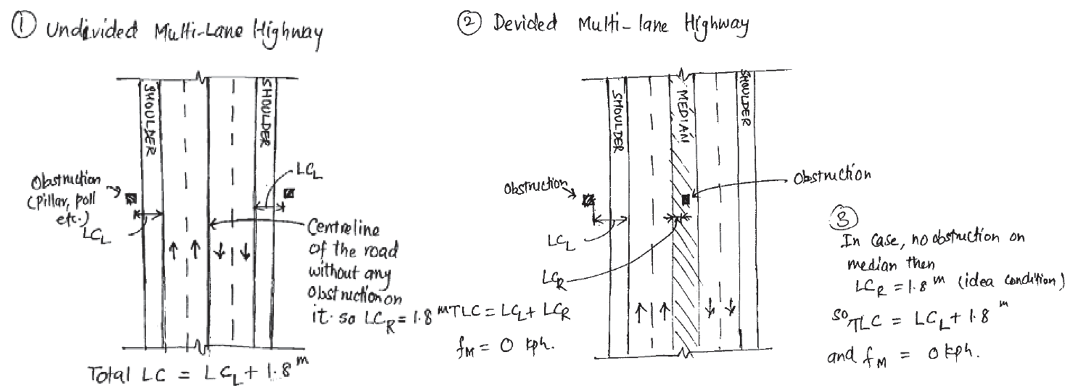 ① Undivided Multi-Lane Highway
SHOULDER
SHOULDER
Obstruction
(Pillar, poll
etc.)
LCL
LCL
Centreline
of the road
without any
Obstruction on
it. so LCR = 1.8 m
Total LC = LCL + 1.8 m
② Devided Multi-lane Highway
SHOULDER
MEDIAN
SHOULDER
Obstruction
Obstruction
LCL
LCR
TLC = LCL + LCR
fM = 0 kph.
③
In case, no obstruction on
median then
LCR = 1.8 m (idea condition)
so TLC = LCL + 1.8 m
and fM = 0 kph.